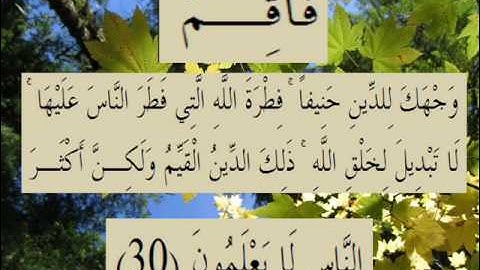 فَأَقِـــــمْ
وَجْهَكَ لِلدِّينِ حَنِيفاً ۚ فِطْرَةَ اللَّهِ الَّتِي فَطَرَ النَّاسَ عَلَيْهَا ۚ
لَا تَبْدِيلَ لِخَلْقِ اللَّهِ ۚ ذَلِكَ الدِّينُ الْقَيِّمُ وَلَكِـــنَّ أَكْثَـــرَ
النَّاسِ لَا يَعْلَمُونَ (30)